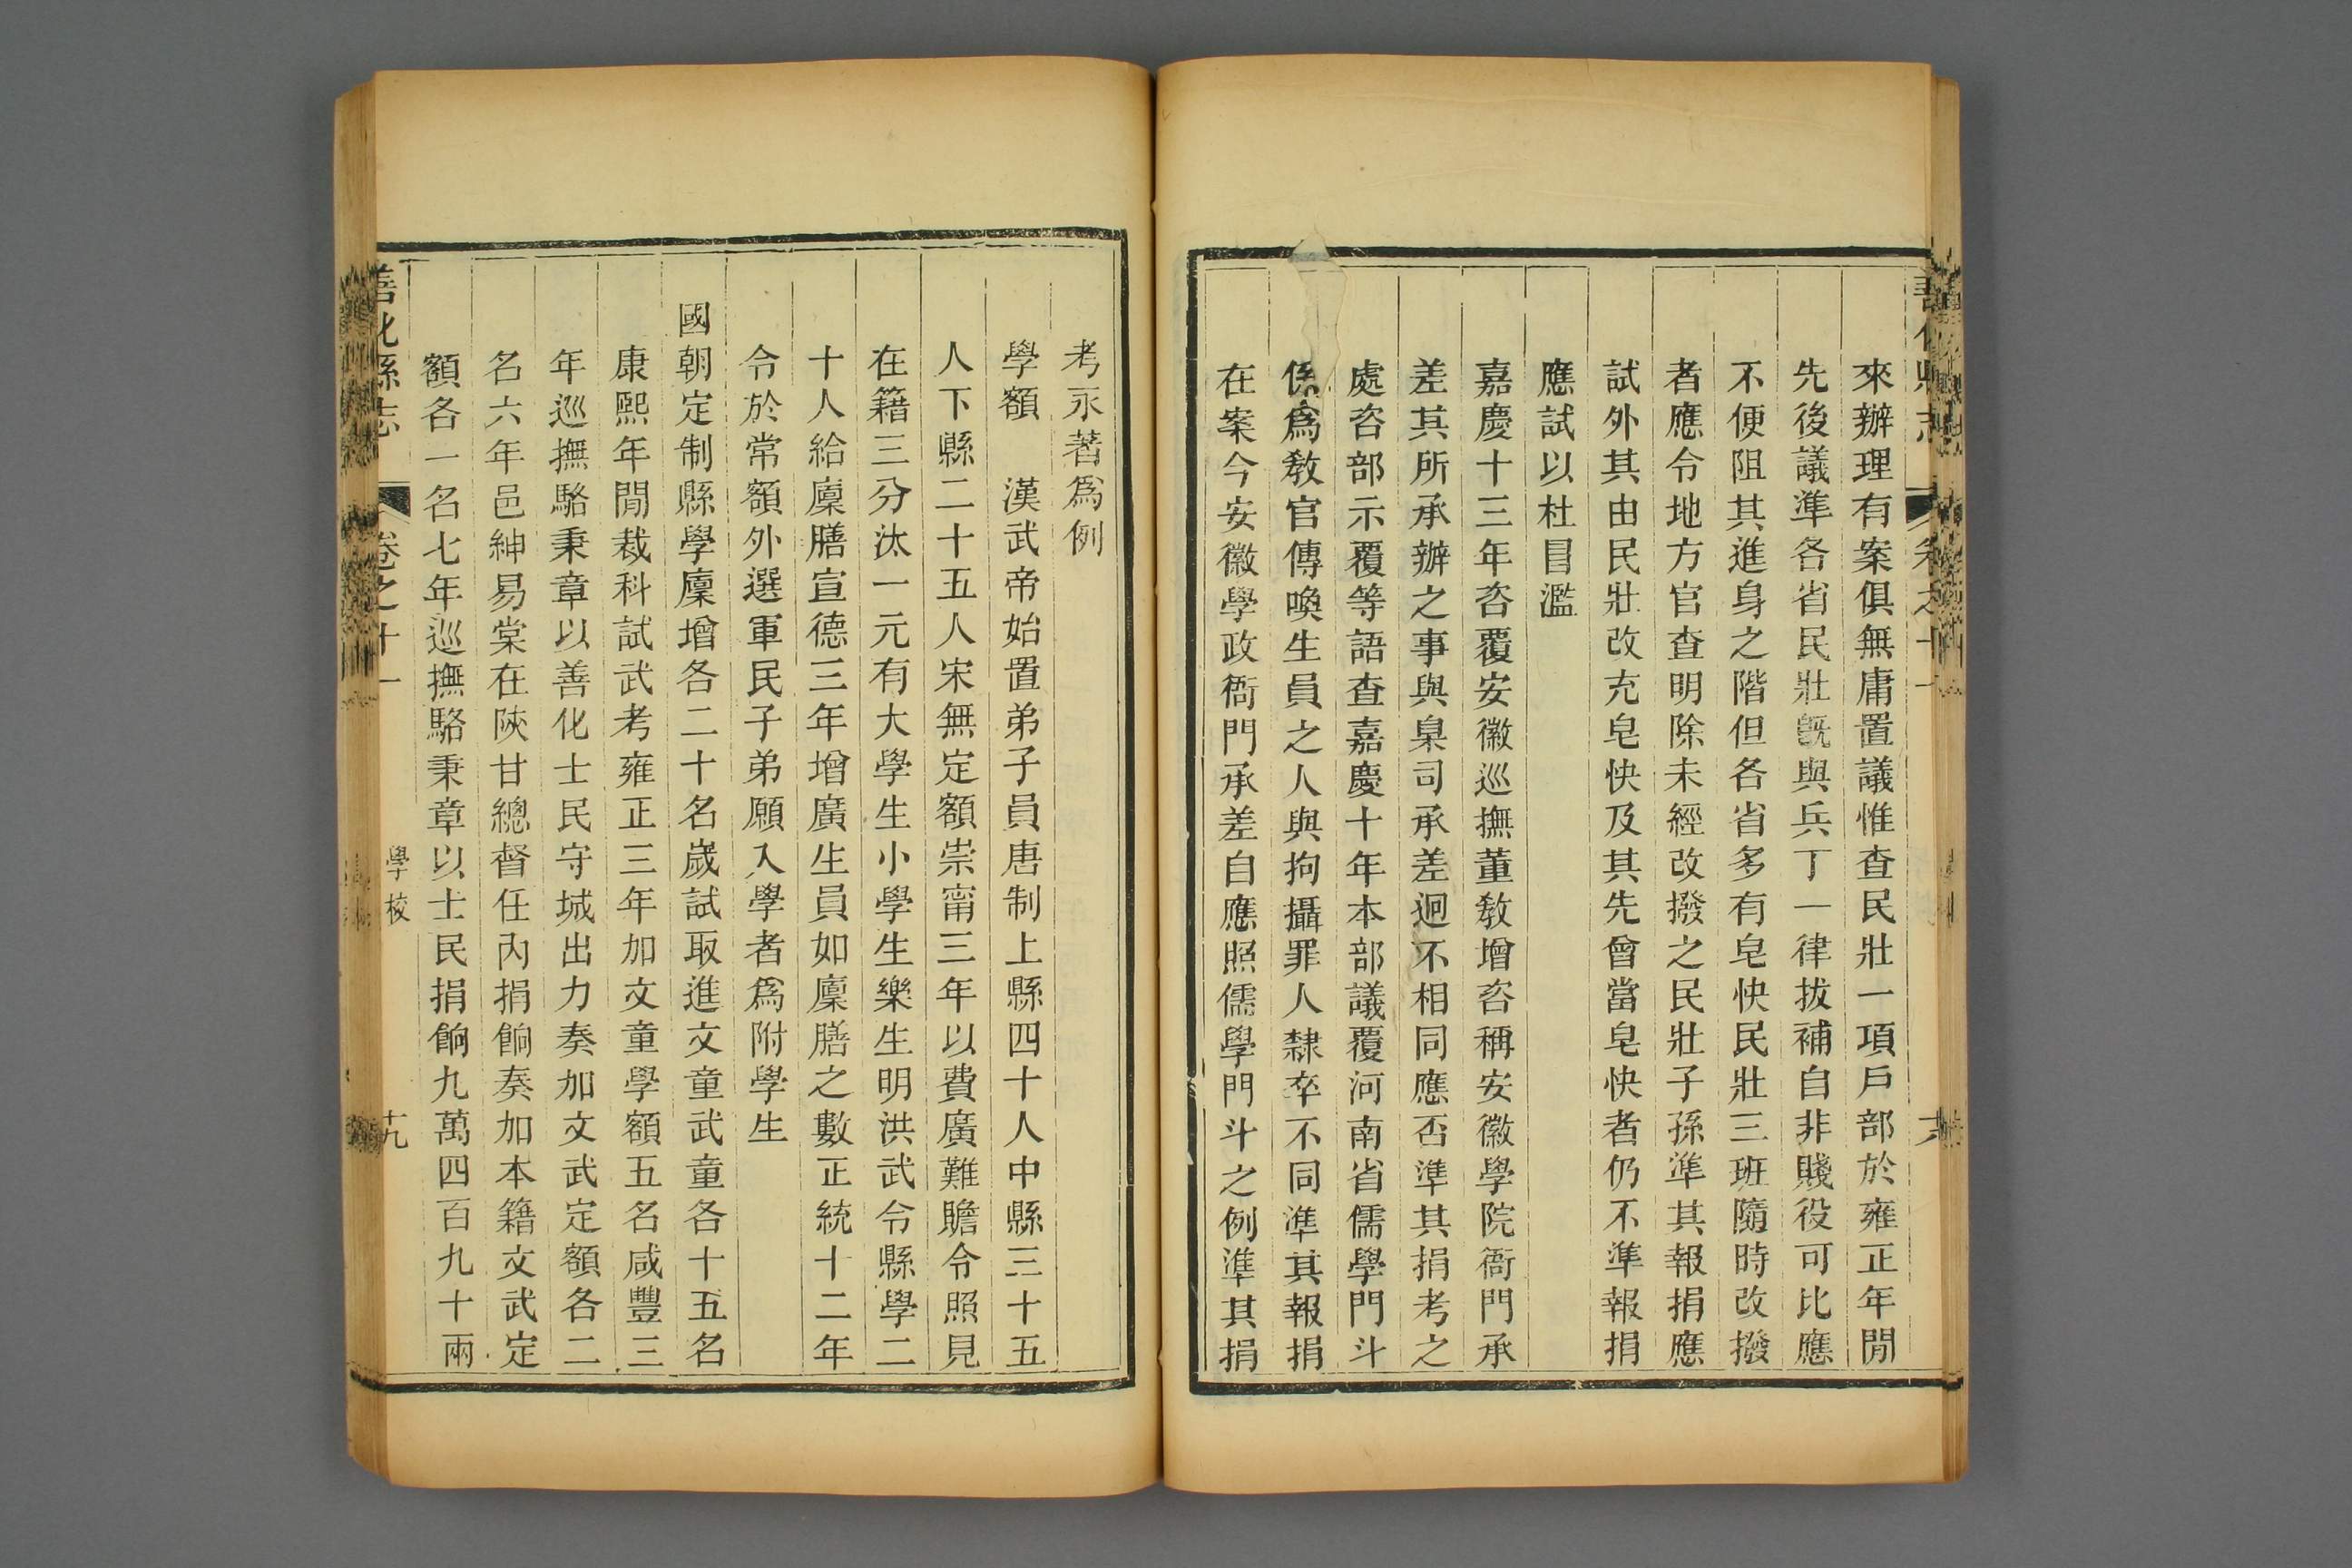 來辦理有案俱無庸置議惟查民壯一項戶部於雍正年閒
先後議準各省民壯旣與兵丁一律拔補自非賤役可比應
不便阻其進身之階但各省多有皂快民壯三班隨時改撥
者應令地方官查明除未經改撥之民壯子孫準其報捐應
試外其由民壯改充皂快及其先曾當皂快者仍不準報捐
應試以杜冒濫
嘉慶十三年咨覆安徽巡撫董敎增咨稱安徽學院衙門承
差其所承辦之事與臬司承差迥不相同應否準其捐考之
處咨部示覆等語查嘉慶十年本部議覆河南省儒學門斗
係爲敎官傳喚生員之人與拘攝罪人隸卒不同準其報捐
在案今安徽學政衙門承差自應照儒學門斗之例準其捐
考永著爲例
學額　漢武帝始置弟子員唐制上縣四十人中縣三十五
人下縣二十五人宋無定額崇甯三年以費廣難贍令照見
在籍三分汰一元有大學生小學生樂生明洪武令縣學二
十人給廩膳宣德三年增廣生員如廩膳之數正統十二年
令於常額外選軍民子弟願入學者爲附學生
國朝定制縣學廩增各二十名歲試取進文童武童各十五名
康熙年閒裁科試武考雍正三年加文童學額五名咸豐三
年巡撫駱秉章以善化士民守城出力奏加文武定額各二
名六年邑紳易棠在陝甘總督任內捐餉奏加本籍文武定
額各一名七年巡撫駱秉章以士民捐餉九萬四百九十兩
善化縣志　卷之十一　學校　十九